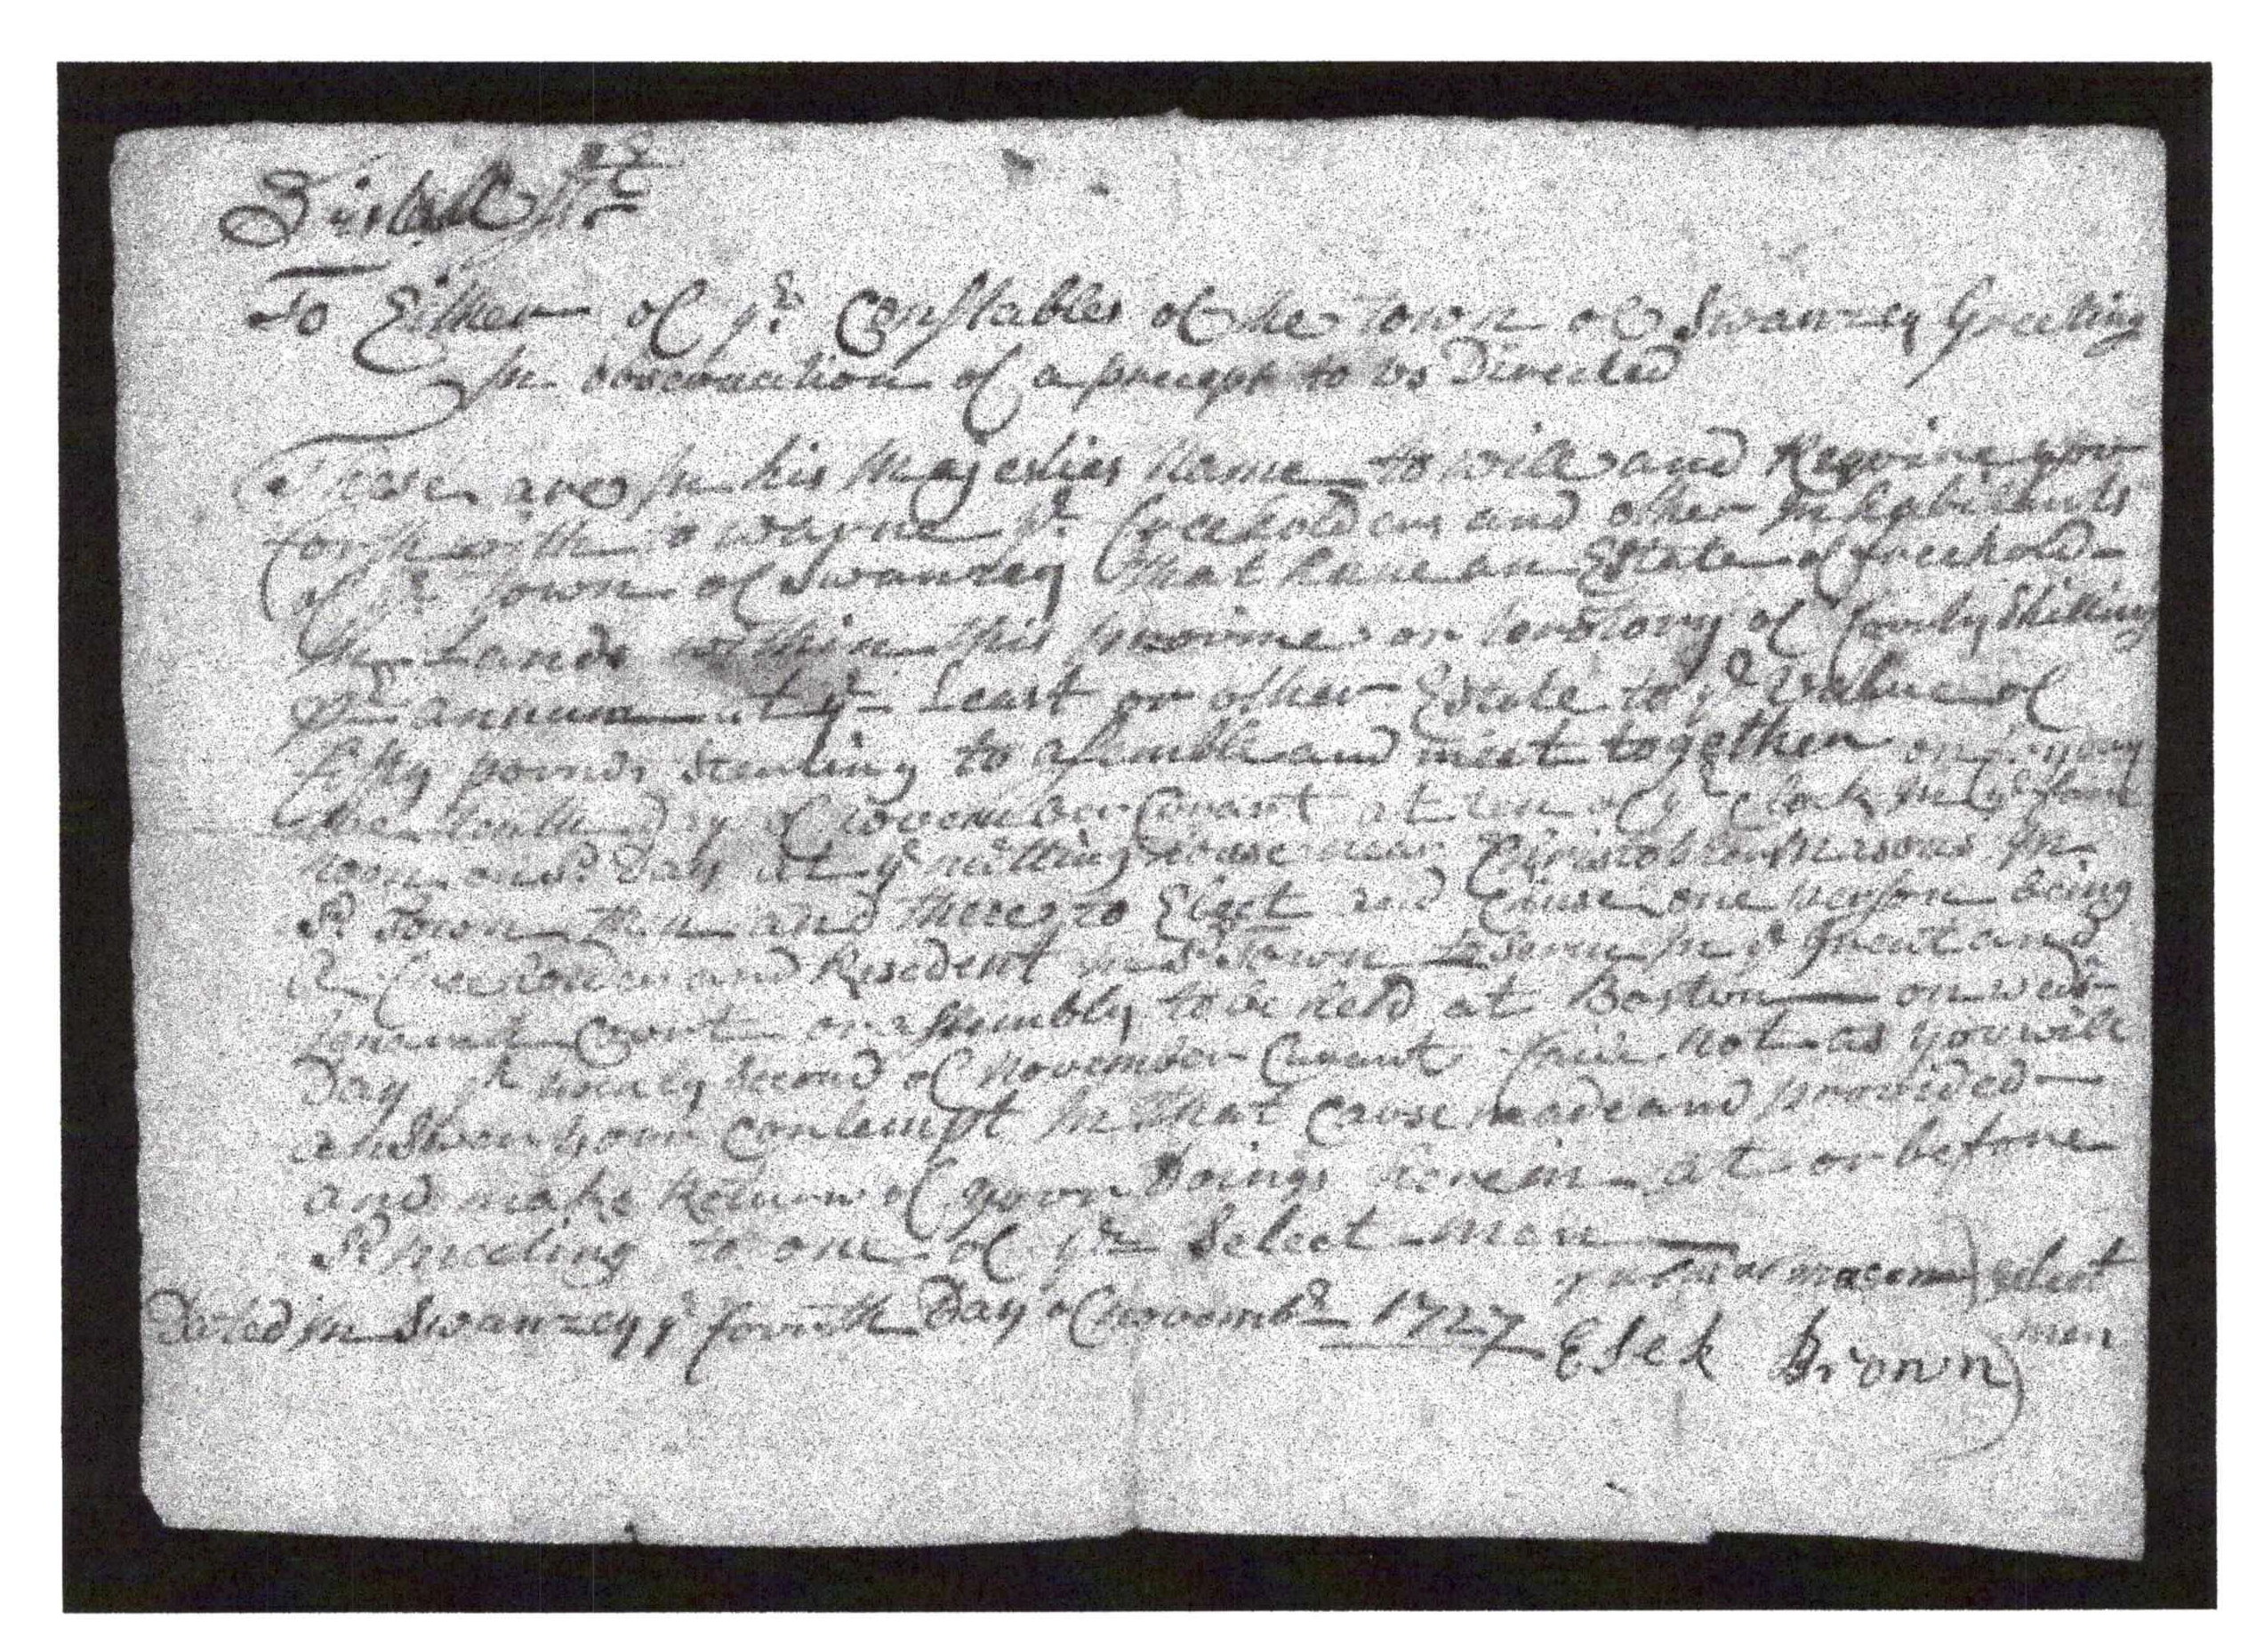 Bristoll ss
To Either of ye Constables of the Town of Swanzey Greeting
In observation of a precept to us Directed
These are In his Majesties Name to will and Require you
forthwith to warne ye freeholders and other Inhabitants
of ye Town of Swanzey that have an Estate of freehold
In Lands within this province or teretory of forty Shilling
pr annum at ye Least or other Estate to ye value of
fifty pounds Sterling to assemble and meet together on
the tenth Day of November Curant at ten of ye Clock In ye
noon on sd Day at ye meeting house near Christopher Masons In
sd Town then and there to Elect and person being
a freeholder and Resident In sd Town to serve In ye Great and
Court or assembly to be held at Boston on wens-
Day ye twenty second of November Curant faile not as you will
answer your Contempt In that Case made and provided
and make Return of your Doings herein at or before
sd meeting to one of ye Select men
Dated In Swanzey ye fourth Day of Novembr 1727
select
Esek Brown men